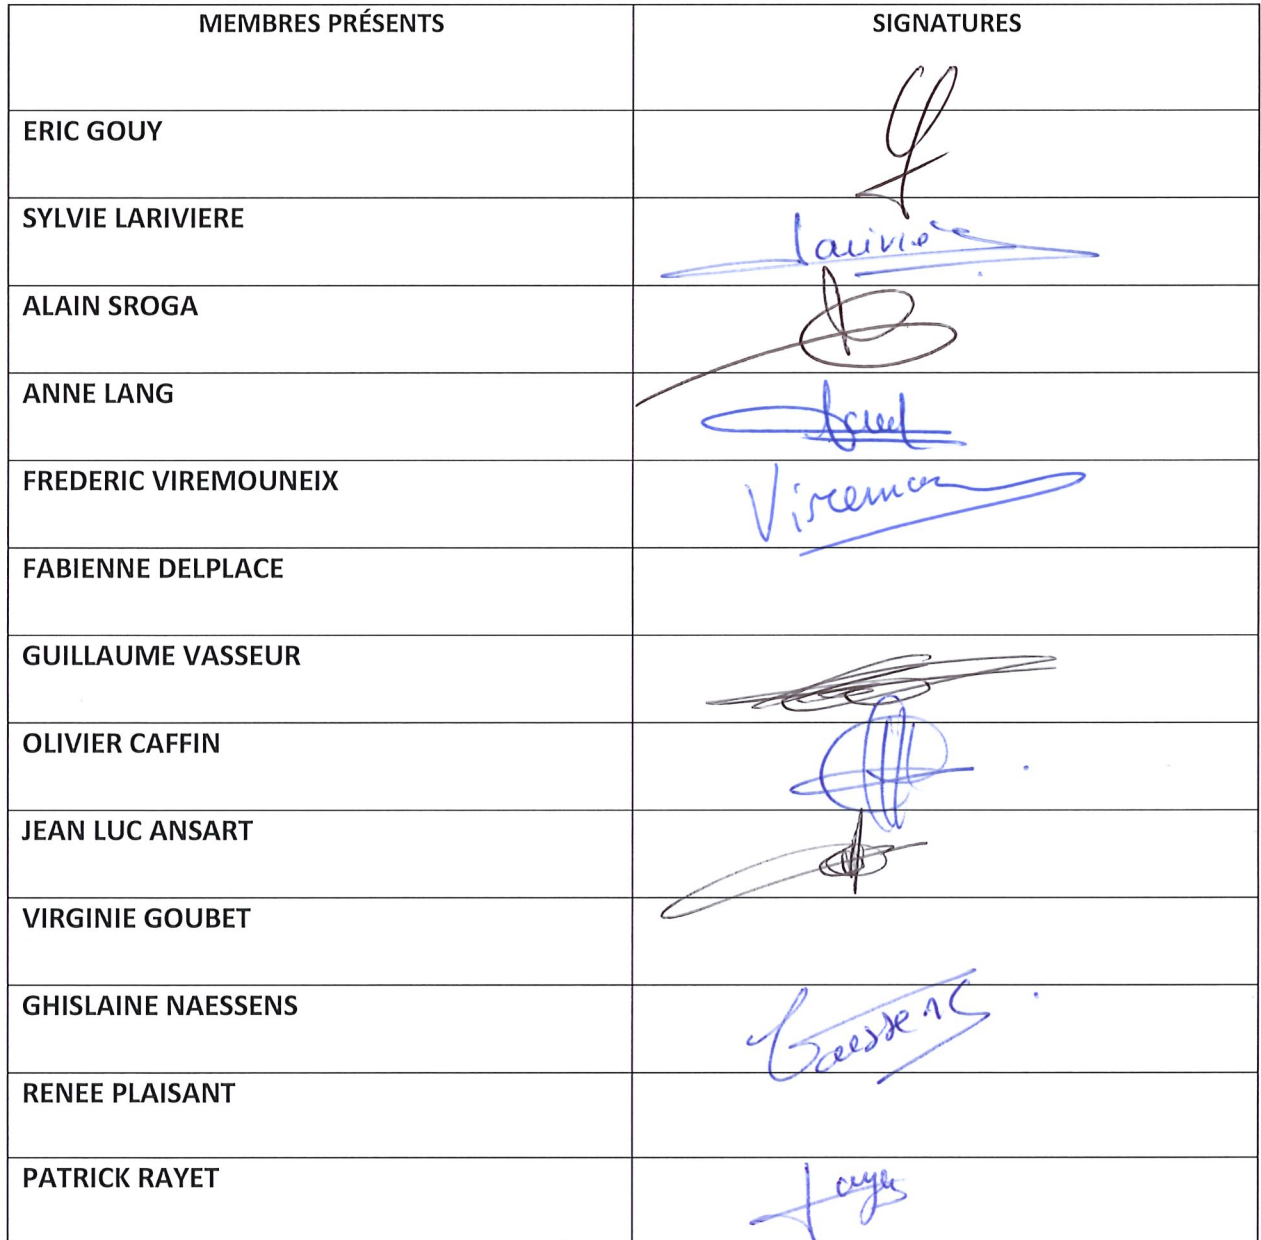 MEMBRES PRÉSENTS SIGNATURES
ERIC GOUY
SYLVIE LARIVIERE
ALAIN SROGA
ANNE LANG
FREDERIC VIREMOUNEIX
FABIENNE DELPLACE
GUILLAUME VASSEUR
OLIVIER CAFFIN
JEAN LUC ANSART
VIRGINIE GOUBET
GHISLAINE NAESSENS
RENEE PLAISANT
PATRICK RAYET